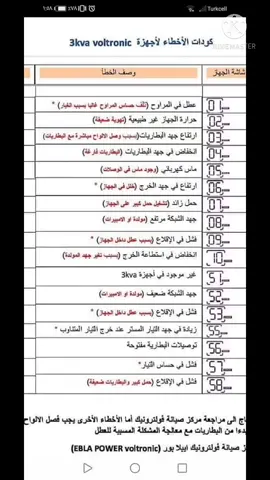 ١:٥٨
Turkcell
كودات الأخطاء لأجهزة 3kva voltronic
شاشة الجهاز
وصف الخطأ
01 عطل في المراوح (تلف حساس المراوح غالبا بسبب الغبار) *
02 حرارة الجهاز غير طبيعية (تهوية ضعيفة)
03 ارتفاع جهد البطاريات (بسبب وصل الالواح مباشرة مع البطاريات)
04 انخفاض في جهد البطاريات (البطاريات فارغة)
05 ماس كهربائي (وجود ماس في الوصلات)
06 ارتفاع في جهد الخرج (خلل في الجهاز) *
07 حمل زائد (تشغيل حمل كبير على الجهاز)
08 جهد الشبكة مرتفع (مولدة او الامبيرات)
09 فشل في الإقلاع (بسبب عطل داخل الجهاز) *
10 انخفاض في استطاعة الخرج (بسبب تغير جهد المولدة)
51 غير موجود في أجهزة 3kva
52 جهد الشبكة ضعيف (مولدة او الامبيرات)
53 فشل في الإقلاع (بسبب عطل داخل الجهاز) *
55 زيادة في جهد التيار المستمر عند خرج التيار المتناوب *
56 توصيلات البطارية مفتوحة
57 فشل في حساس التيار*
58 فشل في الإقلاع (حمل كبير والبطاريات ضعيفة)
ج الى مراجعة مركز صيانة فولترونيك أما الأخطاء الأخرى يجب فصل الالواح
من البطاريات مع معالجة المشكلة المسببة للعطل
ز صيانة فولترونيك ايبلا بور (EBLA POWER voltronic)